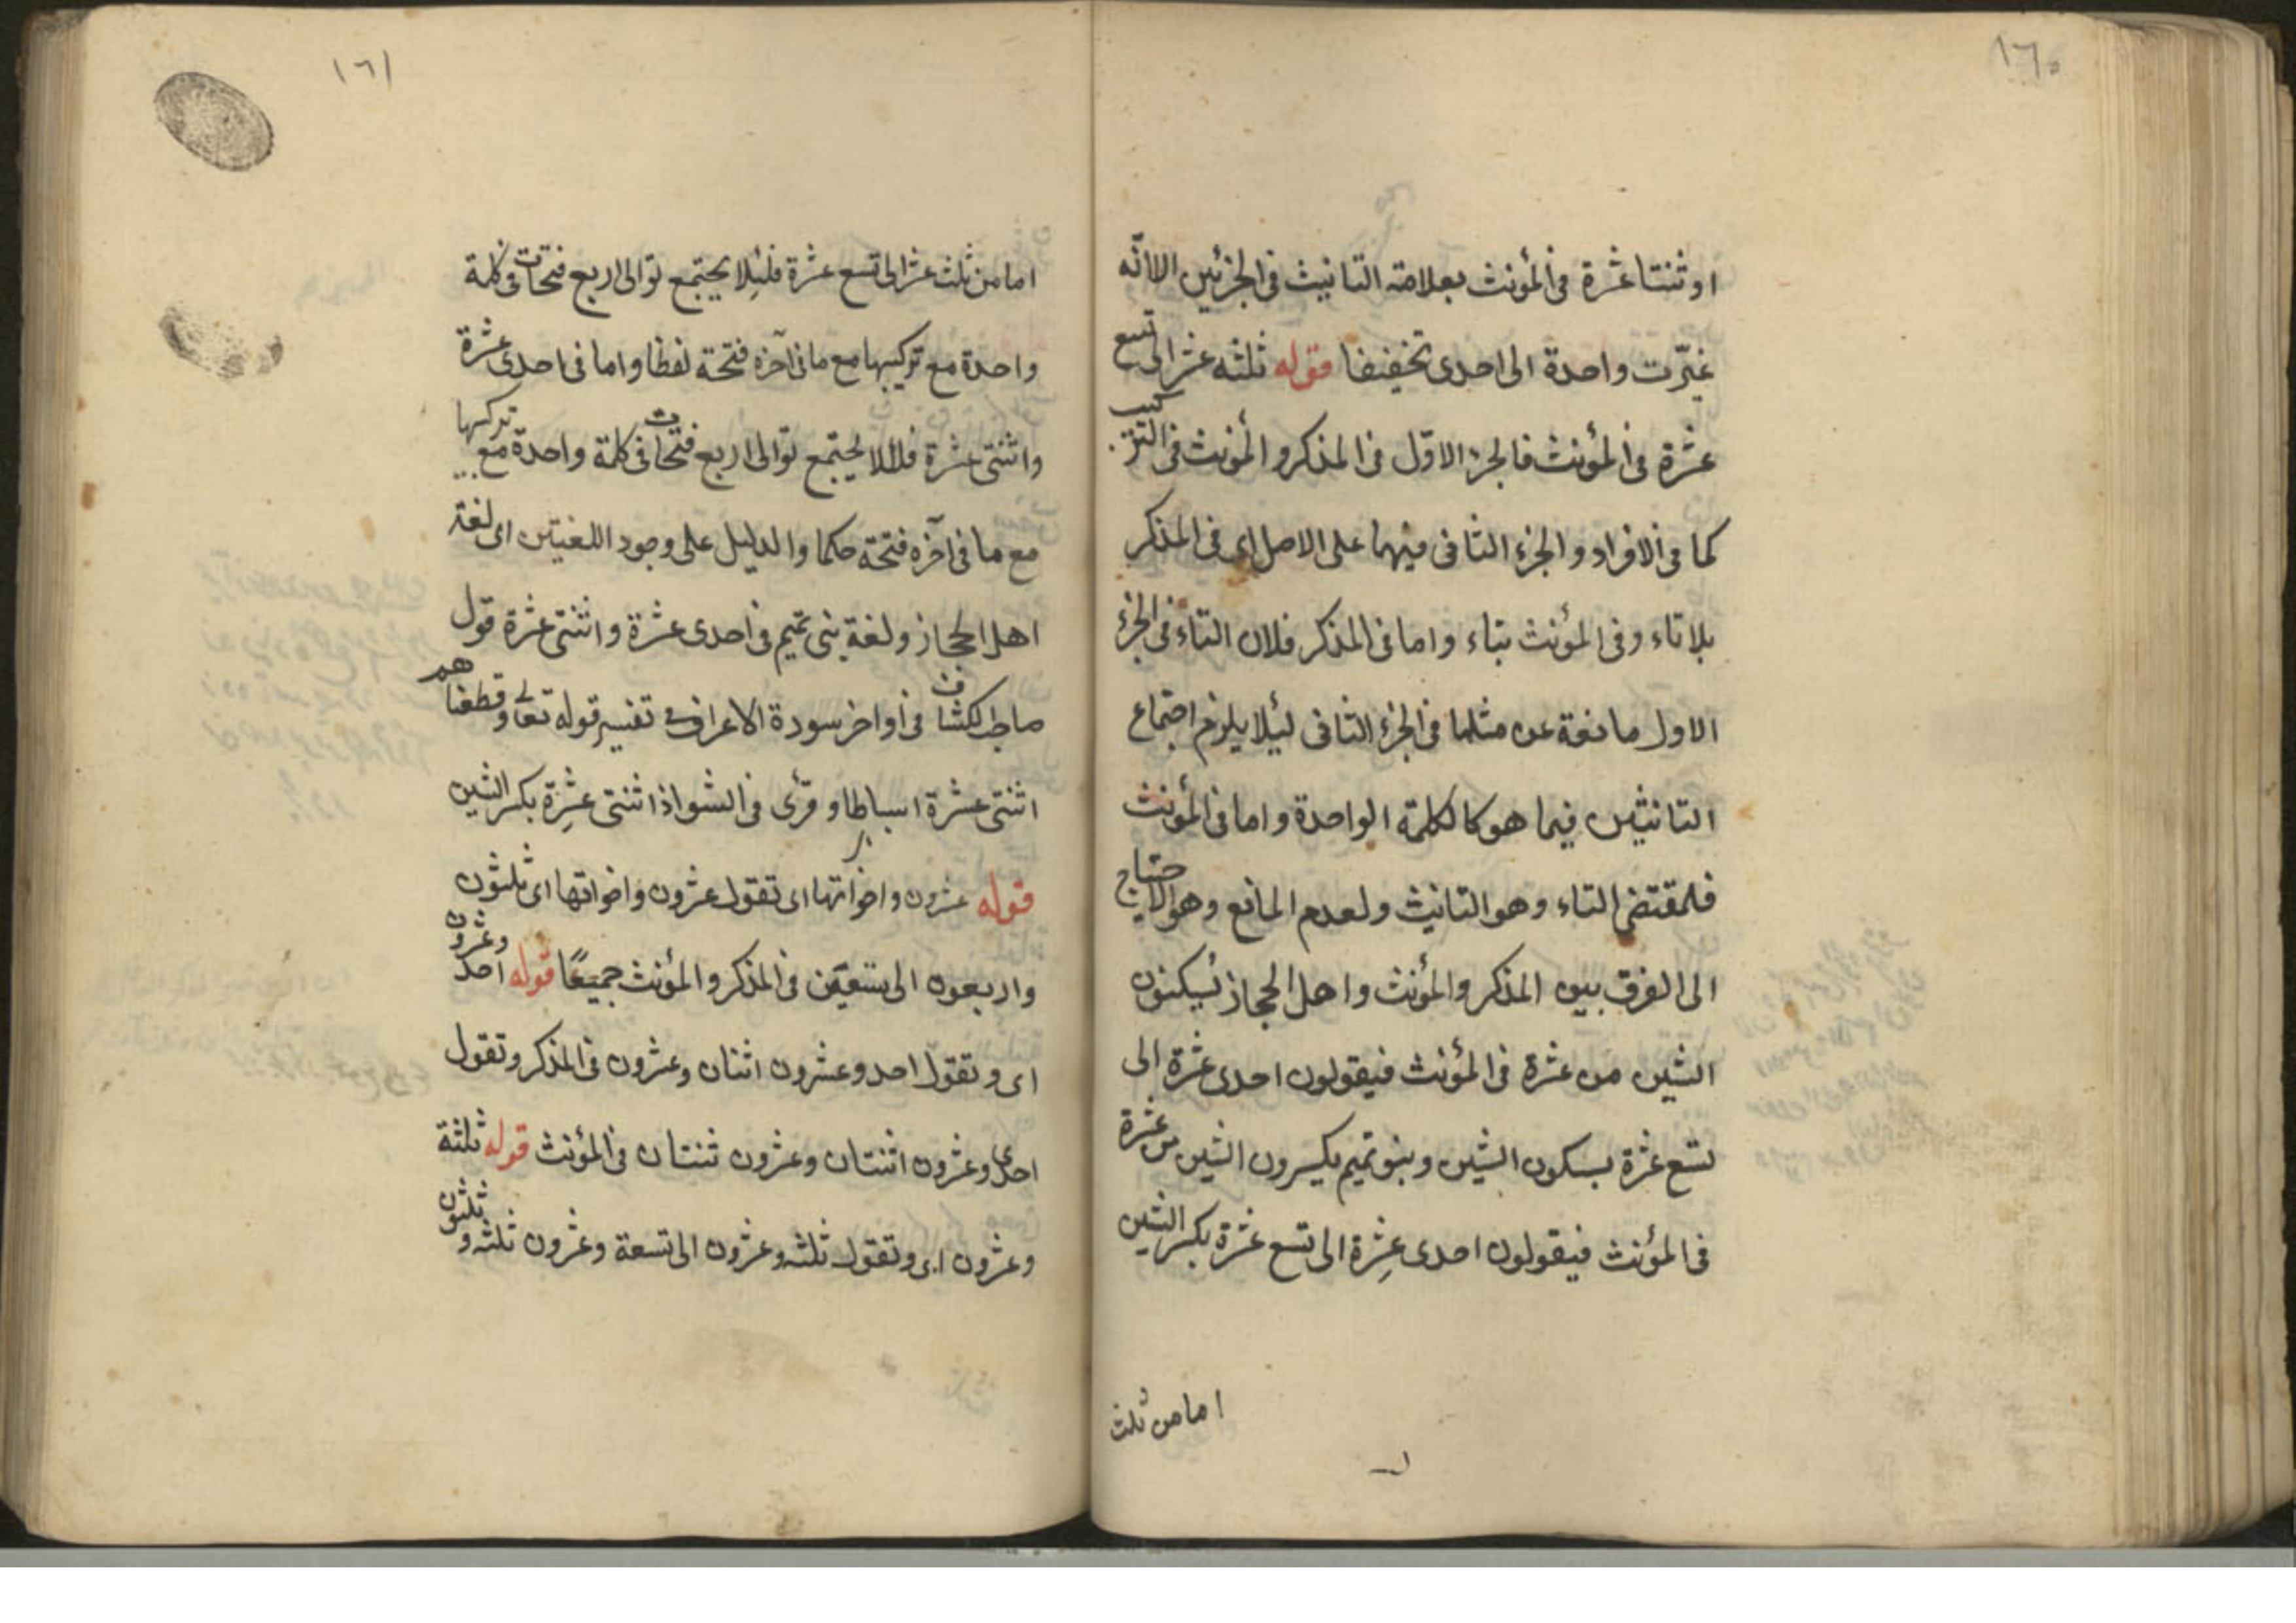 ١٦٠
او ثنتا عشرة فى المؤنث بعلامة التانيث فى الجزئين الا انّه
غيّرت واحدة الى احدى تخفيفا قوله ثلثه عشر الى تسع
عشرة فى المؤنث فالجزء الاوّل فى المذكر والمؤنث فى التركيب
كما فى الافراد والجزء الثانى فيهما على الاصل اى فى المذكر
بلا تاء وفى المؤنث بتاء واما فى المذكر فلان التاء فى الجزء
الاول مانعة عن مثلها فى الجزء الثانى ليئلا يلزم اجتماع
التانيثين فيما هو كالكلمة الواحدة واما فى المؤنث
فلمقتضى التاء وهو التانيث ولعدم المانع وهو الاحتياج
الى الفرق بين المذكر والمؤنث واهل الحجاز يُسكنون
الشين من عشرة فى المؤنث فيقولون احدى عشرة الى
تسع عشرة بسكون الشين وبنو تميم يكسرون الشين من عشرة
فى المؤنث فيقولون احدى عشِرة الى تسع عشرة بكسر الشين
اما من ثلث
١٦١
اما من ثلث عشر الى تسع عشرة فلئلا يجتمع توالى اربع فتحات فى كلمة
واحدة مع تركيبها مع ما فى آخره فتحة لفظا واما فى احدى عشرة
واثنتى عشرة فلئلا يجتمع توالى اربع فتحات فى كلمة واحدة مع تركيبها
مع ما فى آخره فتحة حكما والدليل على وجود اللغتين اى لغة
اهل الحجاز ولغة بنى تميم فى احدى عشرة واثنتى عشرة قول
صاحب الكشاف فى أواخر سورة الاعراف فى تفسير قوله تعالى وقطعناهم
اثنتى عشرة اسباطا وقرئ فى الشواذ اثنتى عشِرة بكسر الشين
قوله عشرون واخواتها اى تقول عشرون واخواتها اى ثلثون
واربعون الى تسعين فى المذكر والمؤنث جميعًا قوله احد وعشرون
اى وتقول احد وعشرون اثنان وعشرون فى المذكر وتقول
احدى وعشرون اثنتان وعشرون ثنتان فى المؤنث قوله ثلثة
وعشرون اى وتقول ثلثه وعشرون الى تسعة وعشرون ثلثه وثلثون